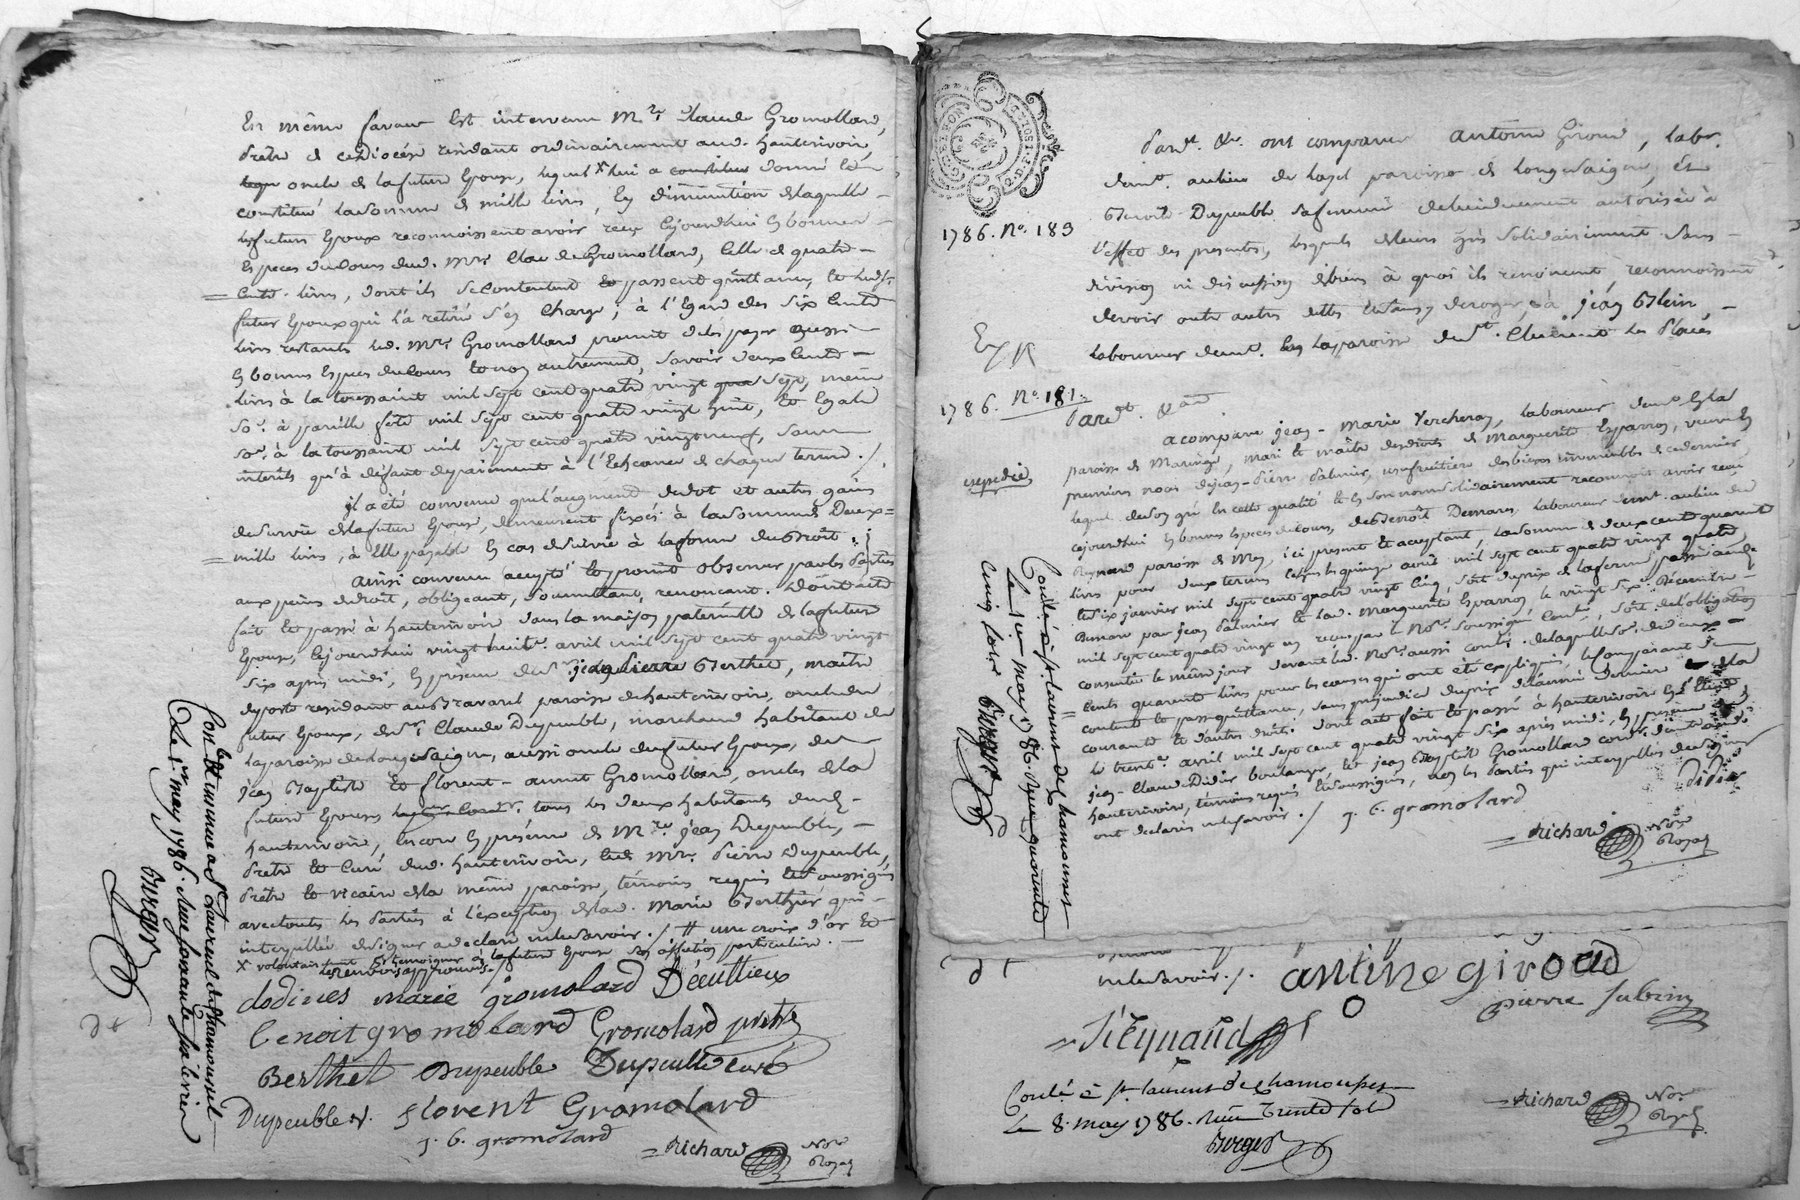 En même faveur Est intervenu Mre Claude Gromollard,
Prêtre de ce diocèse résidant ordinairement aud. hauterivoir,
oncle de la future Epouse, lequel lui a donné et
constitué la somme de mille livres, En diminution de laquelle
les futurs Epoux reconnoissent avoir reçu cejourdhui En bonnes
Espèces du cours dud. Mre Claude Gromollard, celle de quatre
Cents livres, dont ils se contentent et passent quittance, et led.
futur Epoux qui l'a retiré s'en Charge ; à l'Egard des six Cents
livres restants led. Mre Gromollard promet de les payer aussi
En bonnes Espèces du cours et non autrement, savoir deux Cents
livres à la toussaint mil sept cent quatre vingt sept, même
so. à pareille fête mil sept cent quatre vingt huit, et Egale
so. à la toussaint mil sept cent quatre vingt neuf, sans
intérêts qu'à défaut de paiement à l'Echéance de chaque terme ./.
il a été convenu que l'augment de dot et autres gains
de survie de la future Epouse, demeurent fixés à la somme de Deux
mille livres, à Elle payable En cas de survie à la forme du Droit ;
ainsi convenu accepté et promis observer par les Parties
aux peines de droit, obligeant, soumettant, renonçant. Dont acte
fait et passé à hauterivoir dans la maison paternelle de la future
Epouse, cejourdhui vingt huit avril mil sept cent quatre vingt
six après midi, En présence de Sr jean Pierre Berthet, maître
de poste résidant au Bravard paroisse de hauterivoir, oncle du
futur Epoux, de Sr Claude Dupeuble, marchand habitant de
la paroisse de Longesaigne, aussi oncle du futur Epoux, de
jean Baptiste et florent-aimé Gromollard, oncles de la
future Epouse tous les deux habitants dud.
hauterivoir, Encore En présence de Mre jean Dupeuble,
Prêtre et Curé dud. hauterivoir, led. Mre Pierre Dupeuble,
Prêtre et vicaire de la même paroisse, témoins requis et soussignés
avec toutes les Parties à l'exception de lad. Marie Berthier qui
interpellée de signer a déclaré ne le savoir ./. # une croix d'or et
x volontairement Et témoigner à la future Epouse son affection particulière.
les renvois approuvés ./.
dodines marie gromolard Décultieux
benoit gromolard Gromolard prêtre
Berthet Dupeuble Dupeuble curé
Dupeuble v. florent Gromolard
j. b. gromolard
Richard Nore Royal
Con.lé et insinué à St Laurent de chamousset
Le 1er may 1786. Reçu
Burger
Pardt. &c. ont comparu antoine Giroud, labr.
demt. au lieu de paroisse de Longesaigne, Et
Benoite Dupeuble sa femme de lui duement autorisée à
l'effet des presentes, lesquels de leurs grés solidairement sans
division ni discussion de biens à quoi ils renoncent, reconnoissent
devoir outre autres dettes Et sans y deroger, à jean Blein
laboureur demt. En la paroisse de St. Clément les Places
1786. No. 183
1786. No. 181.
Pardt. &c.
a comparu jean-marie Vercheray, laboureur demt. En la
paroisse de Maringe, mari et maître des droits de Marguerite Esparron, veuve En
premières noces de jean-Pierre Palmier, usufruitière des biens immeubles de ce dernier,
lequel de son gré En cette qualité Et En son nom solidairement reconnoit avoir reçu
cejourdhui En bonnes Espèces du cours, de Benoît Demare, laboureur demt. au lieu du
paroisse de Mey, ici présent Et acceptant, la somme de deux cent quarante
livres pour deux termes Echus les quinze avril mil sept cent quatre vingt quatre
Et six janvier mil sept cent quatre vingt cinq, soit du prix de la ferme passée aud.
Demare par jean Palmier Et lad. Marguerite Esparron le vingt six Décembre
mil sept cent quatre vingt un reçue par le Nore. Soussigné
consentie le même jour devant led. Nore. aussi de laquelle so. de deux
Cents quarante livres pour les causes qui ont été Expliquées, le Comparant se
contente Et passe quittance, sans préjudice du prix de l'année dernière de la
courante Et d'autres droits. Dont acte fait Et passé à hauterivoir En l'Etude
le trente. avril mil sept cent quatre vingt six après midi, En présence de
jean-Claude Didier boulanger, Et jean Baptiste Gromollard dud.
hauterivoir, témoins requis Et soussignés, non les Parties qui interpellées de signer
ont déclaré ne le savoir ./. j. b. gromolard Didier
Richard Nore Royal
expédié
Contlé à St. laurent de chamousset
Le 1er may 1786. Reçu quarante
cinq sols Burger
ne le savoir ./. antine giroud
pierre Subrin
Reynaud
Contlé à St. laurent de Chamousset
Le 8. may 1786. Reçu Trente sols
Burger
Richard Nore Royal